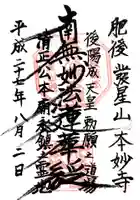 肥後 發星山 本妙寺
後陽成天皇勅願之道場
南無妙法蓮華経
清正公本廟発鎮之霊地
平成二十七年八月二日